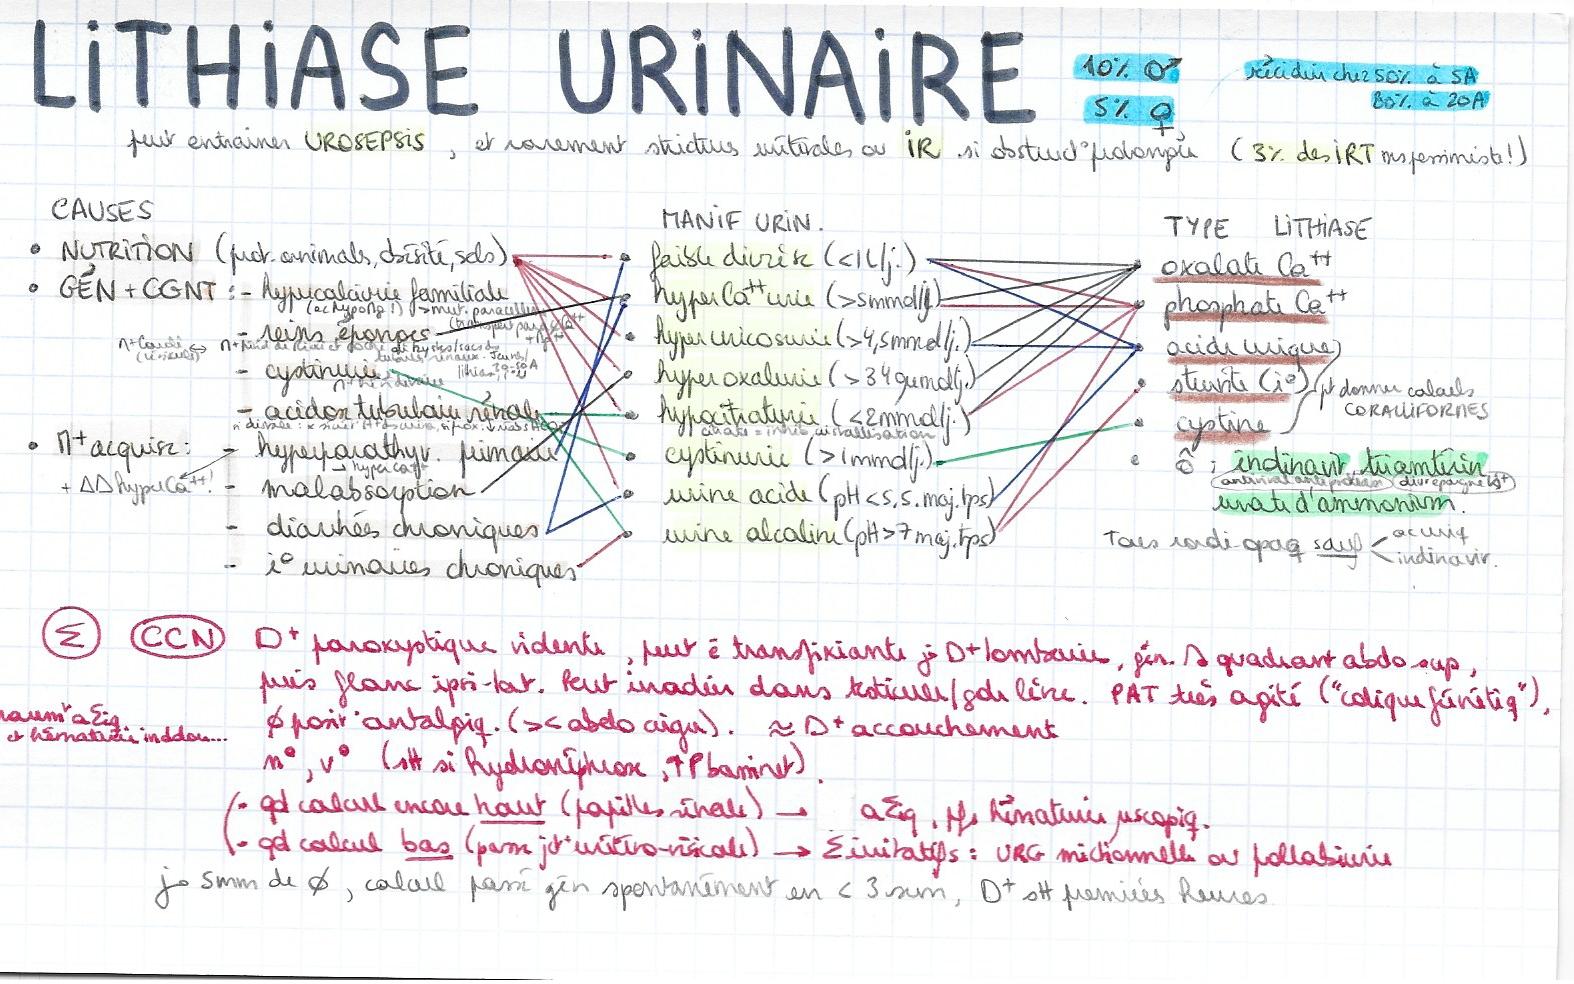 LiTHiASE URiNAiRE
10% ♂
5% ♀
récidive chez 50% à 5A
80% à 20A
peut entrainer UROSEPSIS, et rarement strictures urétérales ou iR si obstruct° prolongée (3% des iRT)
CAUSES
• NUTRiTiON (prot. animales, obésité, sels)
• GÉN + CGNT : - hypercalciurie familiale
- reins éponges
- cystinurie
- acidose tubulaire rénale
• M+ acquises :
- hyperparathyr. primaire
→ hyperCa++
+ ΔΔ hyperCa++!
- malabsorption
- diarrhées chroniques
- i° urinaires chroniques
MANiF URiN.
• faible diurèse (<1L/j.)
• hyperCa++urie (>5mmol/j)
• hyperuricosurie (>4,5mmol/j.)
• hyperoxalurie (>34gumol/j.)
• hypocitraturie (<2mmol/j.)
citrate = inhib. cristallisation
• cystinurie (>1mmol/j.)
• urine acide (pH<5,5. maj. tps)
• urine alcaline (pH>7 maj. tps)
TYPE LiTHiASE
• oxalate Ca++
• phosphate Ca++
• acide urique
• struvite (i°)
• cystine
pt donner calculs
CORALLiFORMES
• ô : indinavir, triamtérène
urate d'ammonium.
Tous radio-opaq sauf
ac. uriq
indinavir.
Σ CCN D+ paroxystique violente, peut ê transfixiante j° D+ lombaire, gén. quadrant abdo sup,
puis flanc ipsi-lat. Peut irradier dans testicule/gde lèvre. PAT très agité ("colique frénétiq"),
∅ posit° antalgiq. (>< abdo aigu). ≈ D+ accouchement
n°, v° (stt si hydronéphrose, ↑P bassinet).
et hématurie indolore...
- qd calcul encore haut (papilles rénale) → aΣiq, hématurie μscopiq.
- qd calcul bas (passe jct° urétéro-vésicale) → Σ irritatifs : URG mictionnelle ou pollakiurie
j° 5mm de ∅, calcul passé gén spontanément en < 3 sem, D+ stt premières heures